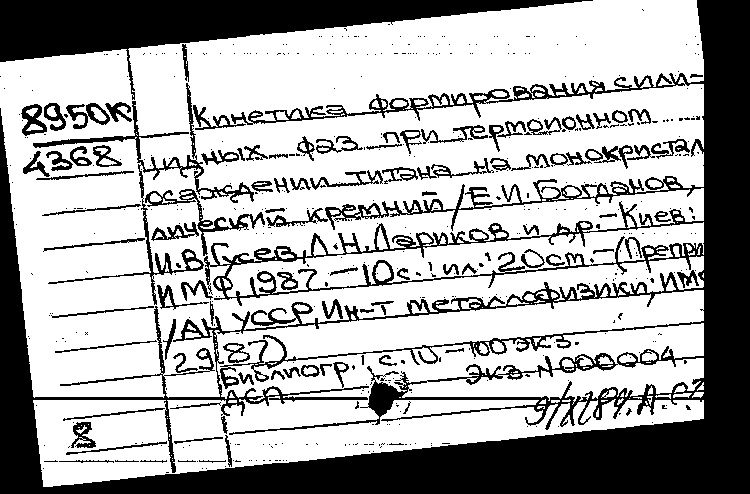 89.50К
4368
Кинетика формирования сили-
цидных фаз при термоионном
осаждении титана на монокристал
лический кремний /Е.И.Богданов,
И.В.Гусев, Л.Н.Лариков и др.-Киев:
ИМФ, 1987.-10с.:ил.; 20см.-(Препри
/АН УССР, Ин-т металлофизики; ИМФ
29.87).
Библиогр.: с.10.-100 экз.
Экз. N000004.
ДСП.
8